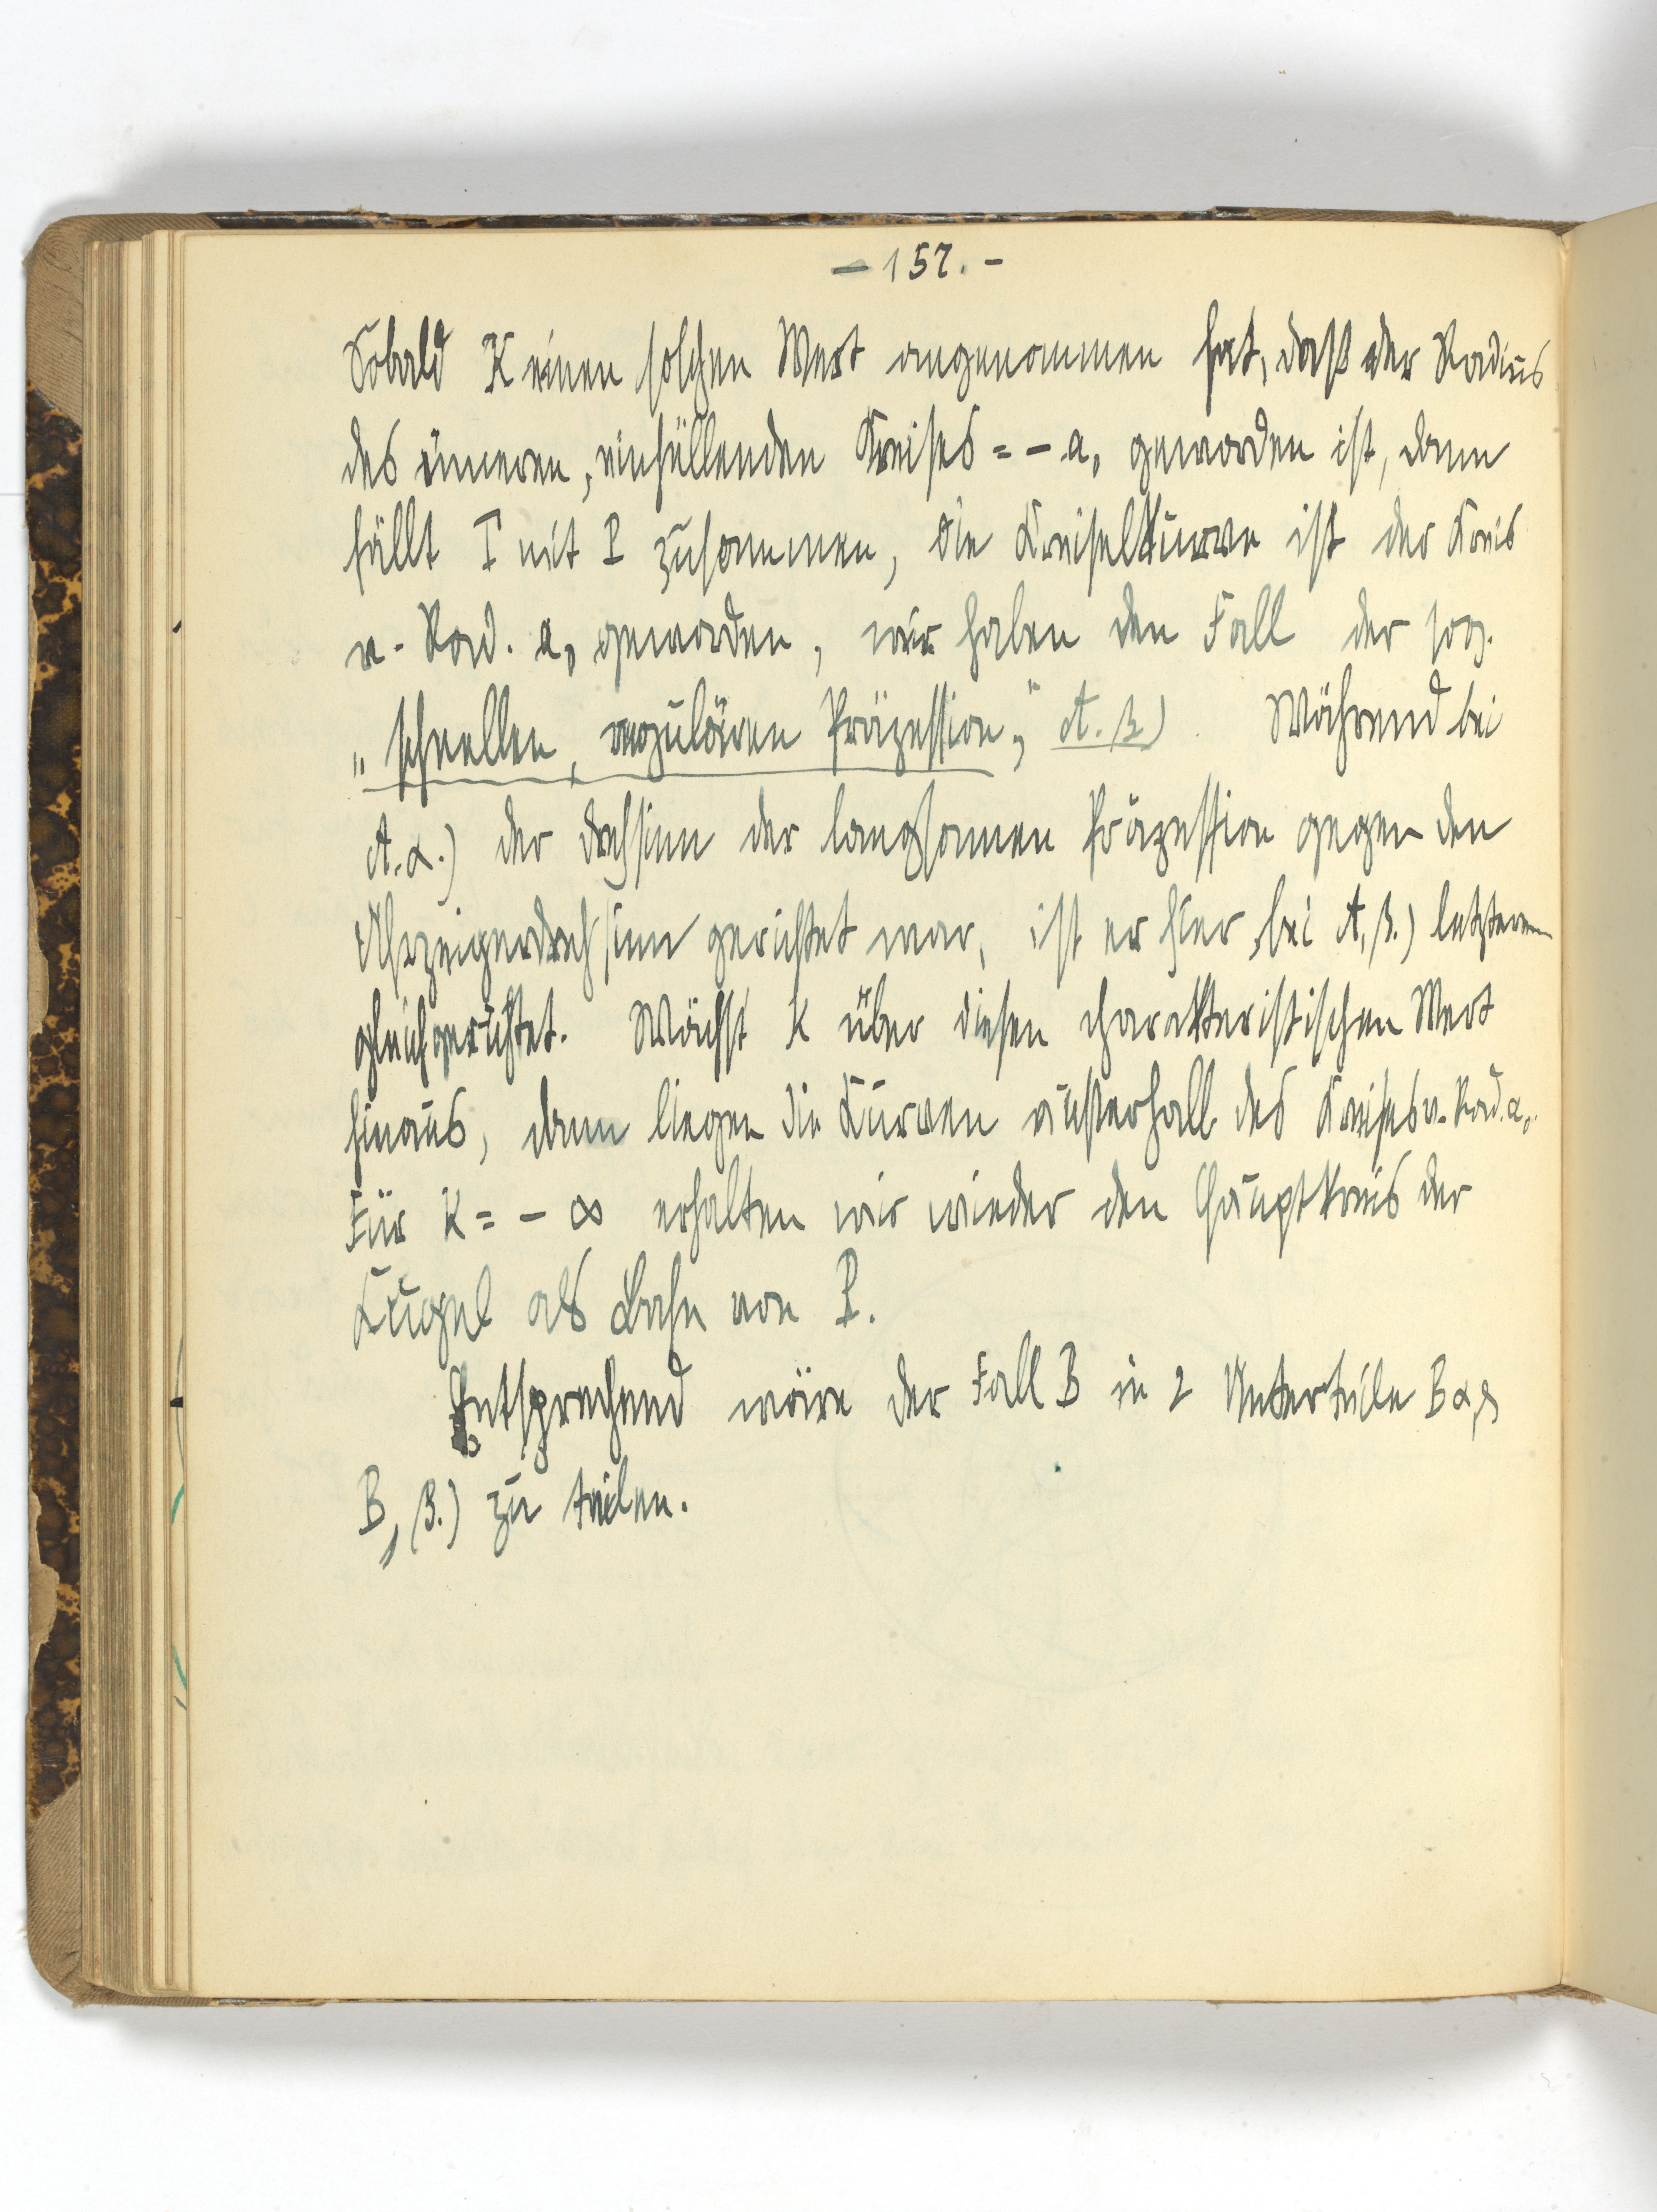 – 157. –
Sobald K einen solchen Wert angenommen hat, daß der Radius
des inneren, einhüllenden Kreises = – a₀ geworden ist, dann
fällt T mit P zusammen, die Kreiselkurve ist der Kreis
v. Rad. a₀ geworden, wir haben den Fall der sog.
„schnellen, regulären Präzession," A. β.) Während bei
A. α.) der Drehsinn der langsamen Präzession gegen den
Uhrzeigerdrehsinn gerichtet war, ist er hier, bei A, β.) letzterem
gleichgerichtet. Wächst K über diesen charakteristischen Wert
hinaus, dann liegen die Kurven außerhalb des Kreises v. Rad. a₀.
Für K = – ∞ erhalten wir wieder den Hauptkreis der
Kugel als Bahn von P.
Entsprechend wäre der Fall B in 2 Unterteile B α,
B, β.) zu teilen.